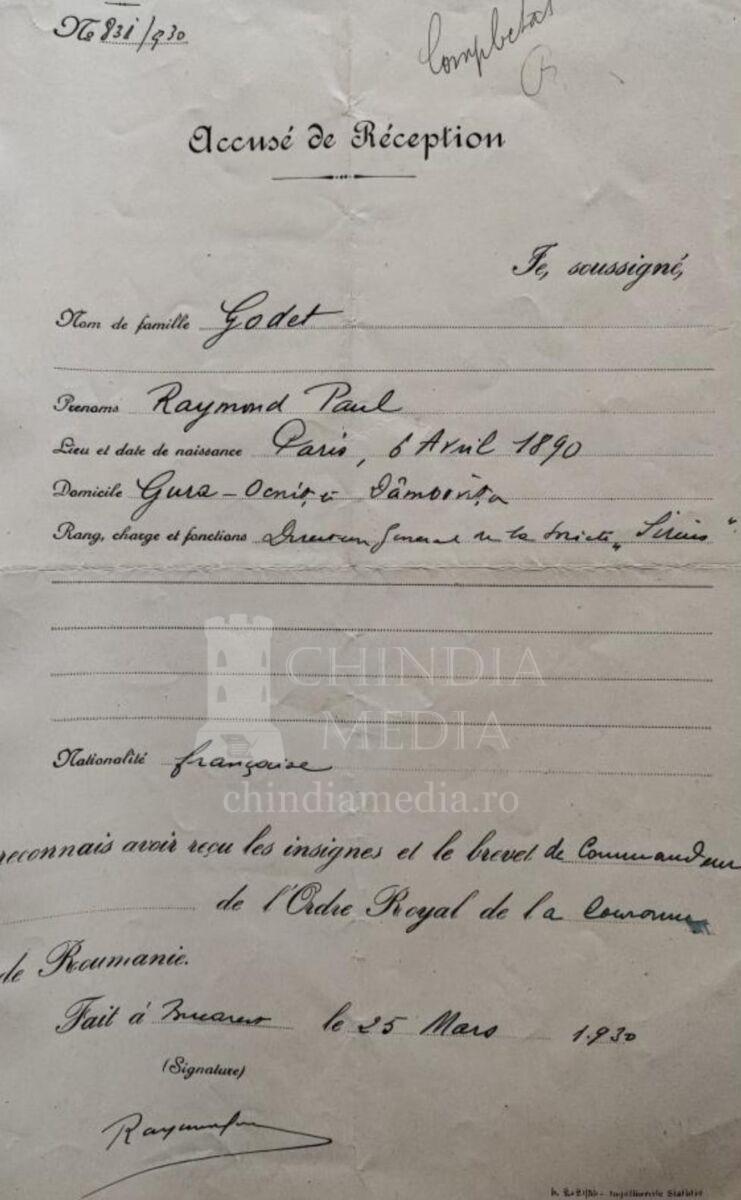 No 831/930
Completat
Accusé de Réception
Je, soussigné,
Nom de famille Godet
Prenoms Raymond Paul
Lieu et date de naissance Paris, 6 Avril 1890
Domicile Gura-Ocniței Dâmbovița
Rang, charge et fonctions Directeur General de la Société „Sirius“
CHINDIA
MEDIA
Nationalité française
chindiamedia.ro
reconnais avoir reçu les insignes et le brevet de Commandeur
de l'Ordre Royal de la Couronne
de Roumanie.
Fait á Bucarest le 25 Mars 1.930
(Signature)